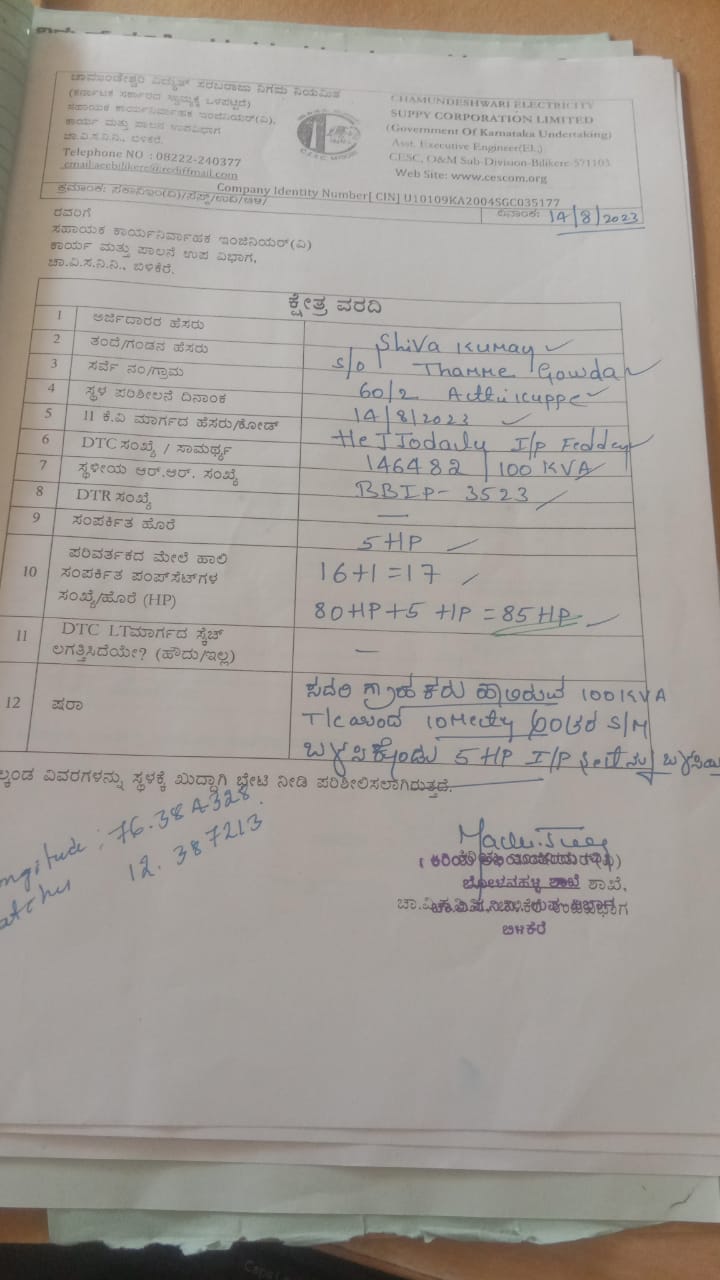 ಚಾಮುಂಡೇಶ್ವರಿ ವಿದ್ಯುತ್ ಸರಬರಾಜು ನಿಗಮ ನಿಯಮಿತ
(ಕರ್ನಾಟಕ ಸರ್ಕಾರದ ಸ್ವಾಮ್ಯಕ್ಕೆ ಒಳಪಟ್ಟಿದೆ)
ಸಹಾಯಕ ಕಾರ್ಯನಿರ್ವಾಹಕ ಇಂಜಿನಿಯರ್(ವಿ),
ಕಾರ್ಯ ಮತ್ತು ಪಾಲನ ಉಪವಿಭಾಗ
ಚಾ.ವಿ.ಸ.ನಿ.ನಿ., ಬಿಳಿಕೆರೆ.
Telephone NO : 08222-240377
email:aeebilikere@rediffmail.com
CHAMUNDESHWARI ELECTRICITY
SUPPY CORPORATION LIMITED
(Government Of Karnataka Undertaking)
Asst. Executive Engineer(El.)
CESC, O&M Sub-Division-Bilikere-571103
Web Site: www.cescom.org
Company Identity Number[ CIN] U10109KA2004SGC035177
ಕ್ರಮಾಂಕ:
ದಿನಾಂಕ: 14/8/2023
ರವರಿಗೆ
ಸಹಾಯಕ ಕಾರ್ಯನಿರ್ವಾಹಕ ಇಂಜಿನಿಯರ್(ವಿ)
ಕಾರ್ಯ ಮತ್ತು ಪಾಲನೆ ಉಪ ವಿಭಾಗ,
ಚಾ.ವಿ.ಸ.ನಿ.ನಿ., ಬಿಳಿಕೆರೆ.
ಕ್ಷೇತ್ರ ವರದಿ
1 ಅರ್ಜಿದಾರರ ಹೆಸರು Shiva Kumar
2 ತಂದೆ/ಗಂಡನ ಹೆಸರು S/o Thamme Gowda
3 ಸರ್ವೆ ನಂ/ಗ್ರಾಮ 60/2 Atthikuppe
4 ಸ್ಥಳ ಪರಿಶೀಲನೆ ದಿನಾಂಕ 14/8/2023
5 11 ಕೆ.ವಿ ಮಾರ್ಗದ ಹೆಸರು/ಕೋಡ್ I/p
6 DTC ಸಂಖ್ಯೆ / ಸಾಮರ್ಥ್ಯ 146482 / 100 KVA
7 ಸ್ಥಳೀಯ ಆರ್.ಆರ್. ಸಂಖ್ಯೆ BBIP- 3523
8 DTR ಸಂಖ್ಯೆ —
9 ಸಂಪರ್ಕಿತ ಹೊರೆ 5 HP
10 ಪರಿವರ್ತಕದ ಮೇಲೆ ಹಾಲಿ
ಸಂಪರ್ಕಿತ ಪಂಪ್‌ಸೆಟ್‌ಗಳ
ಸಂಖ್ಯೆ/ಹೊರೆ (HP)
16+1=17
80HP+5 HP = 85 HP
11 DTC LTಮಾರ್ಗದ ಸ್ಕೆಚ್
ಲಗತ್ತಿಸಿದೆಯೇ? (ಹೌದು/ಇಲ್ಲ) —
12 ಷರಾ
ಸದರಿ ಗ್ರಾಹಕರು ಹಾಲಿರುವ 100KVA
T/c ಯಿಂದ ಅಂತರ S/M
ಬಳಸಿಕೊಂಡು 5 HP I/P
ವಿವರಗಳನ್ನು ಸ್ಥಳಕ್ಕೆ ಖುದ್ದಾಗಿ ಭೇಟಿ ನೀಡಿ ಪರಿಶೀಲಿಸಲಾಗಿರುತ್ತದೆ.
12. 387213
ಶಾಖೆ,
ಬಿಳಿಕೆರೆ